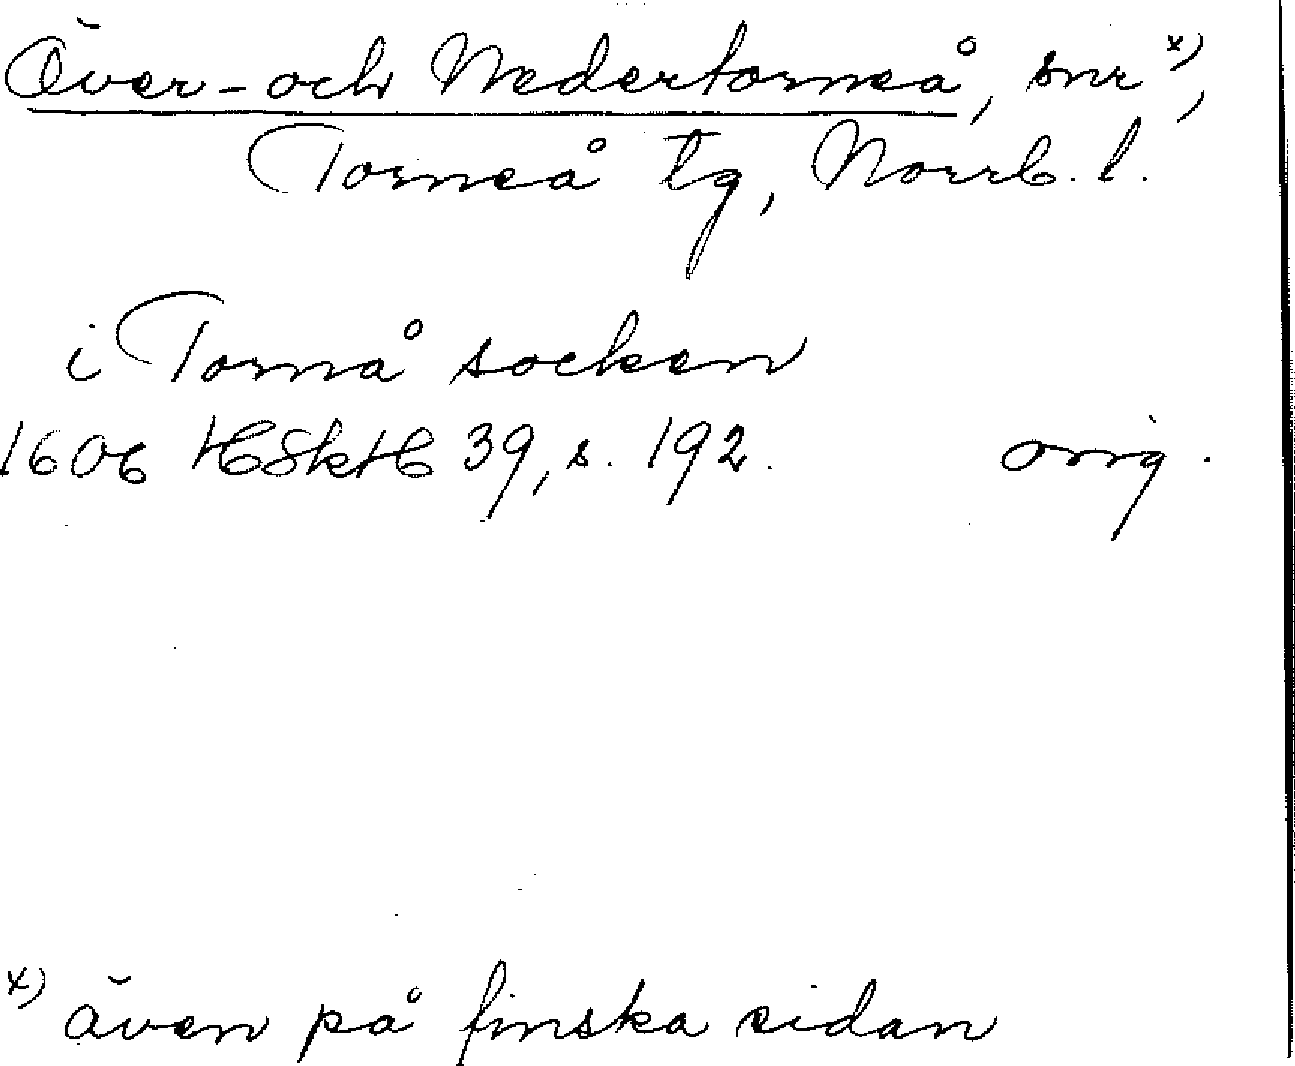 Över- och Nedertorneå, snr x),
Torneå tg, Norrb. l.
i Tornå socken
1606 HSkH 39, s. 192. orig.
x) även på finska sidan